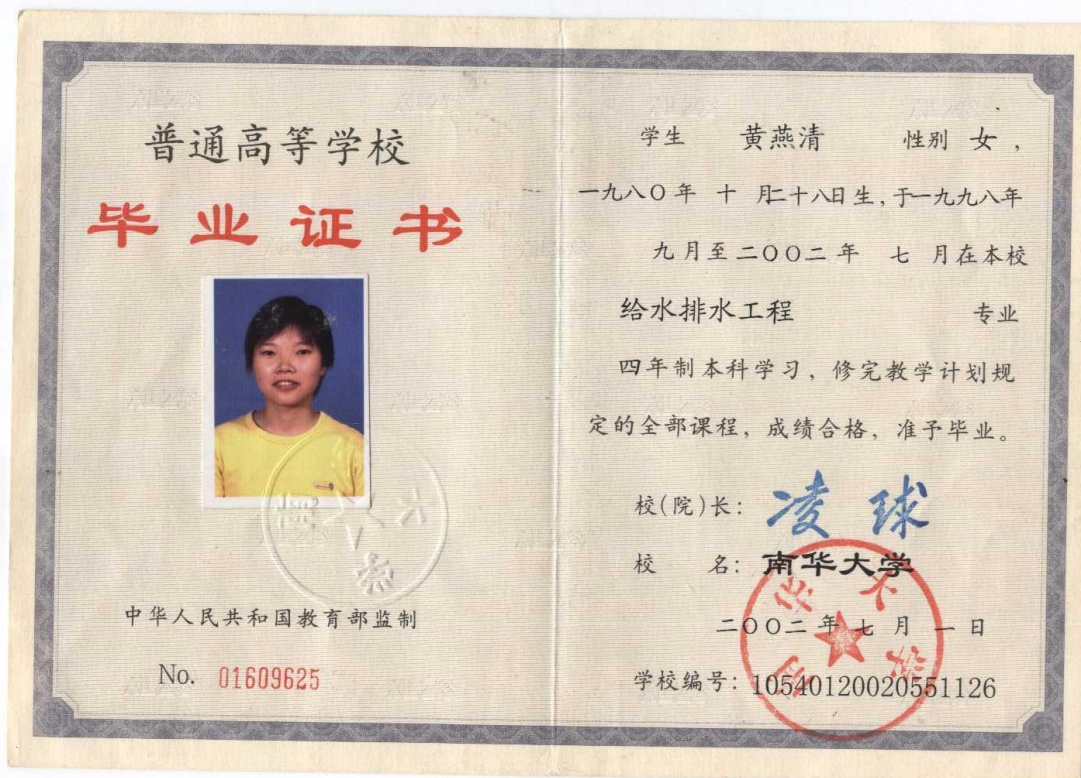 普通高等学校
毕业证书
中华人民共和国教育部监制
No. 01609625
学生 黄燕清 性别 女，
一九八〇年 十 月二十八日生，于一九九八年
九月至二〇〇二年 七 月在本校
给水排水工程 专业
四年制本科学习，修完教学计划规
定的全部课程，成绩合格，准予毕业。
校(院)长：凌球
校 名：南华大学
二〇〇二年七月一日
学校编号：105401200205511​26
南华大学